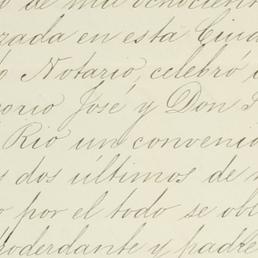 o de mil ochocient
zada en esta Ciud
o Notario, celebró
orio José y Don
Rio un convenio
s dos últimos de
o por el todo se obl
poderdante y padre